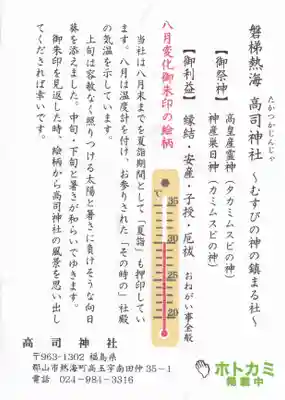 磐梯熱海 高司神社 ～むすびの神の鎮まる社～
たかつかじんじゃ
【御祭神】
高皇産霊神（タカミムスビの神）
神産巣日神（カミムスビの神）
【御利益】
縁結・安産・子授・厄祓 おねがい事全般
八月変化御朱印の絵柄
当社は八月末までを夏詣期間として「夏詣」も押印してい
ます。八月は温度計を付け、お参りされた「その時の」社殿
の気温を示しています。
上旬は容赦なく照りつける太陽と暑さに負けそうな向日
葵を添えました。中旬・下旬と暑さが和らいでゆきます。
御朱印を見返した時、絵柄から高司神社の風景を思い出し
てくだされば幸いです。
℃
35
30
25
20
高司神社
〒963-1302 福島県
郡山市熱海町高玉字南田仲35－1
電話 024-984-3316
ホトカミ
掲載中